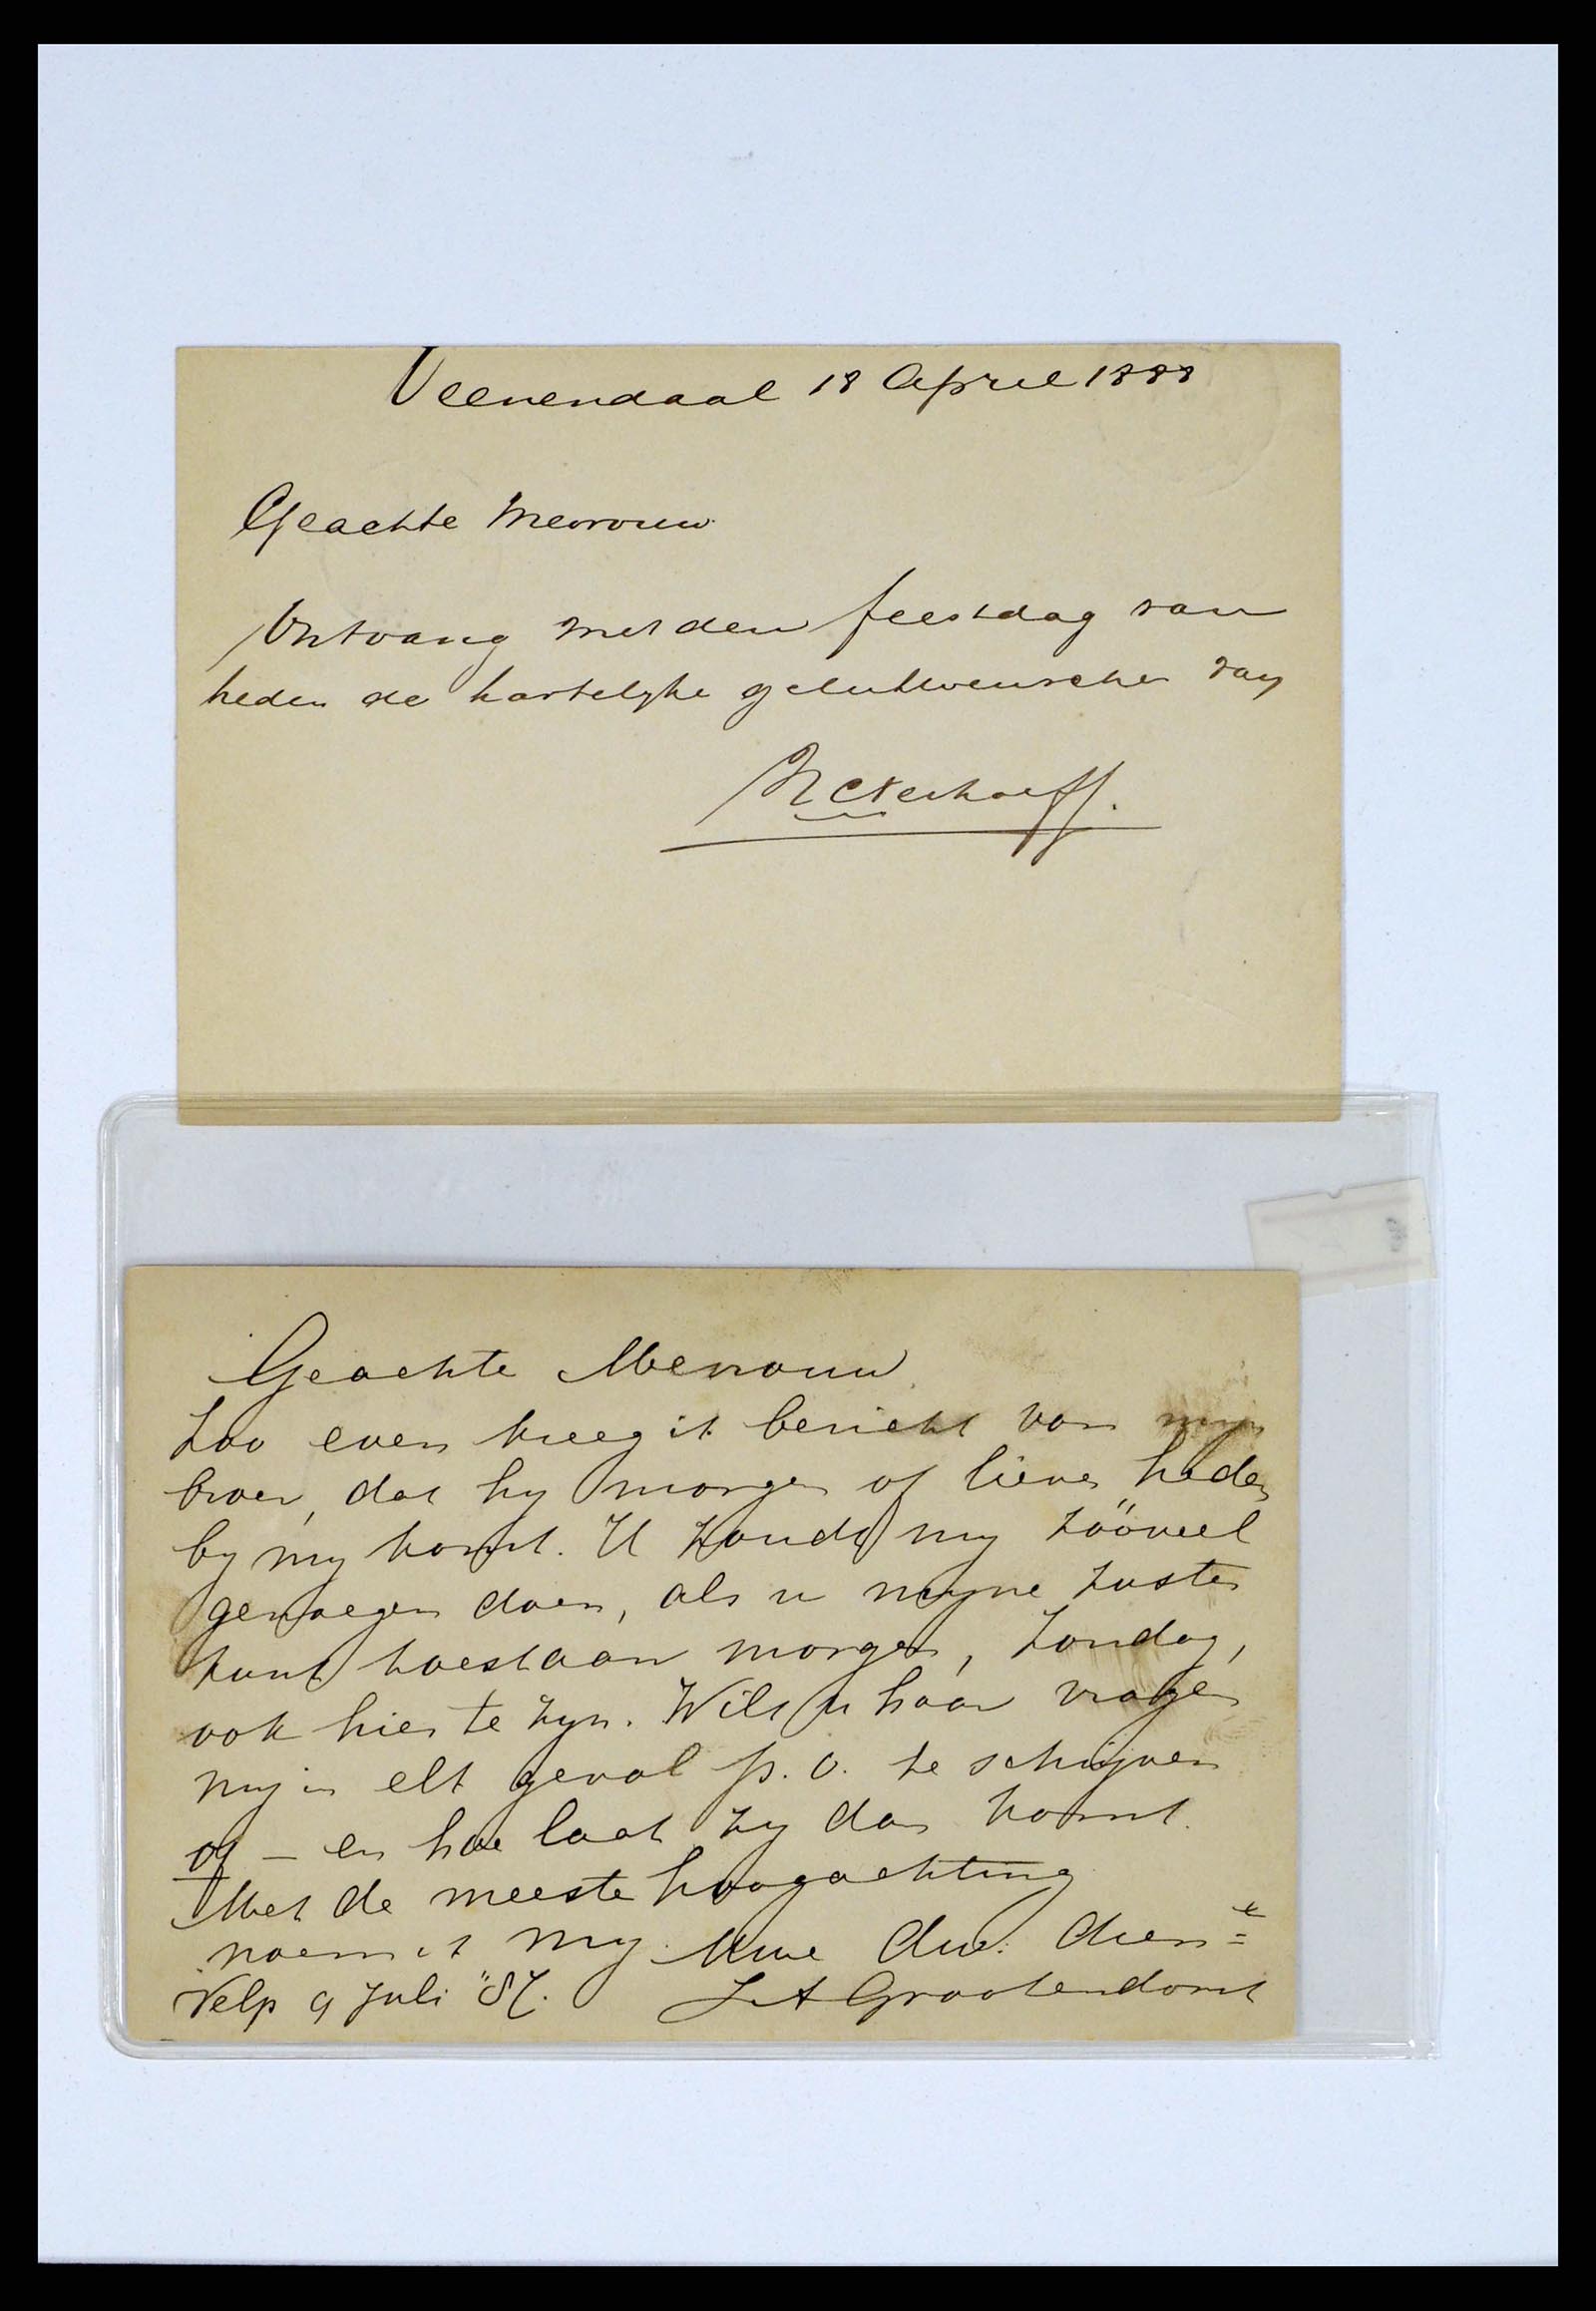 Veenendaal 18 April 1888
Geachte Mevrouw
Ontvang met den feestdag van
heden de hartelyke gelukwenschen van
Geachte Mevrouw
Zoo even kreeg ik bericht van myn
broer, dat hy morgen of liever heden
by my komt. U zoudt my zööveel
genoegen doen, als u myne zuster
kunt toestaan morgen, Zondag,
ook hier te zyn. Wilt u haar vragen
my in elk geval p. o. te schryven
of – en hoe laat zy dan komt.
Met de meeste hoogachting
noem ik my Uwe dw: dien=
Velp 9 Juli "87. Grootendorst